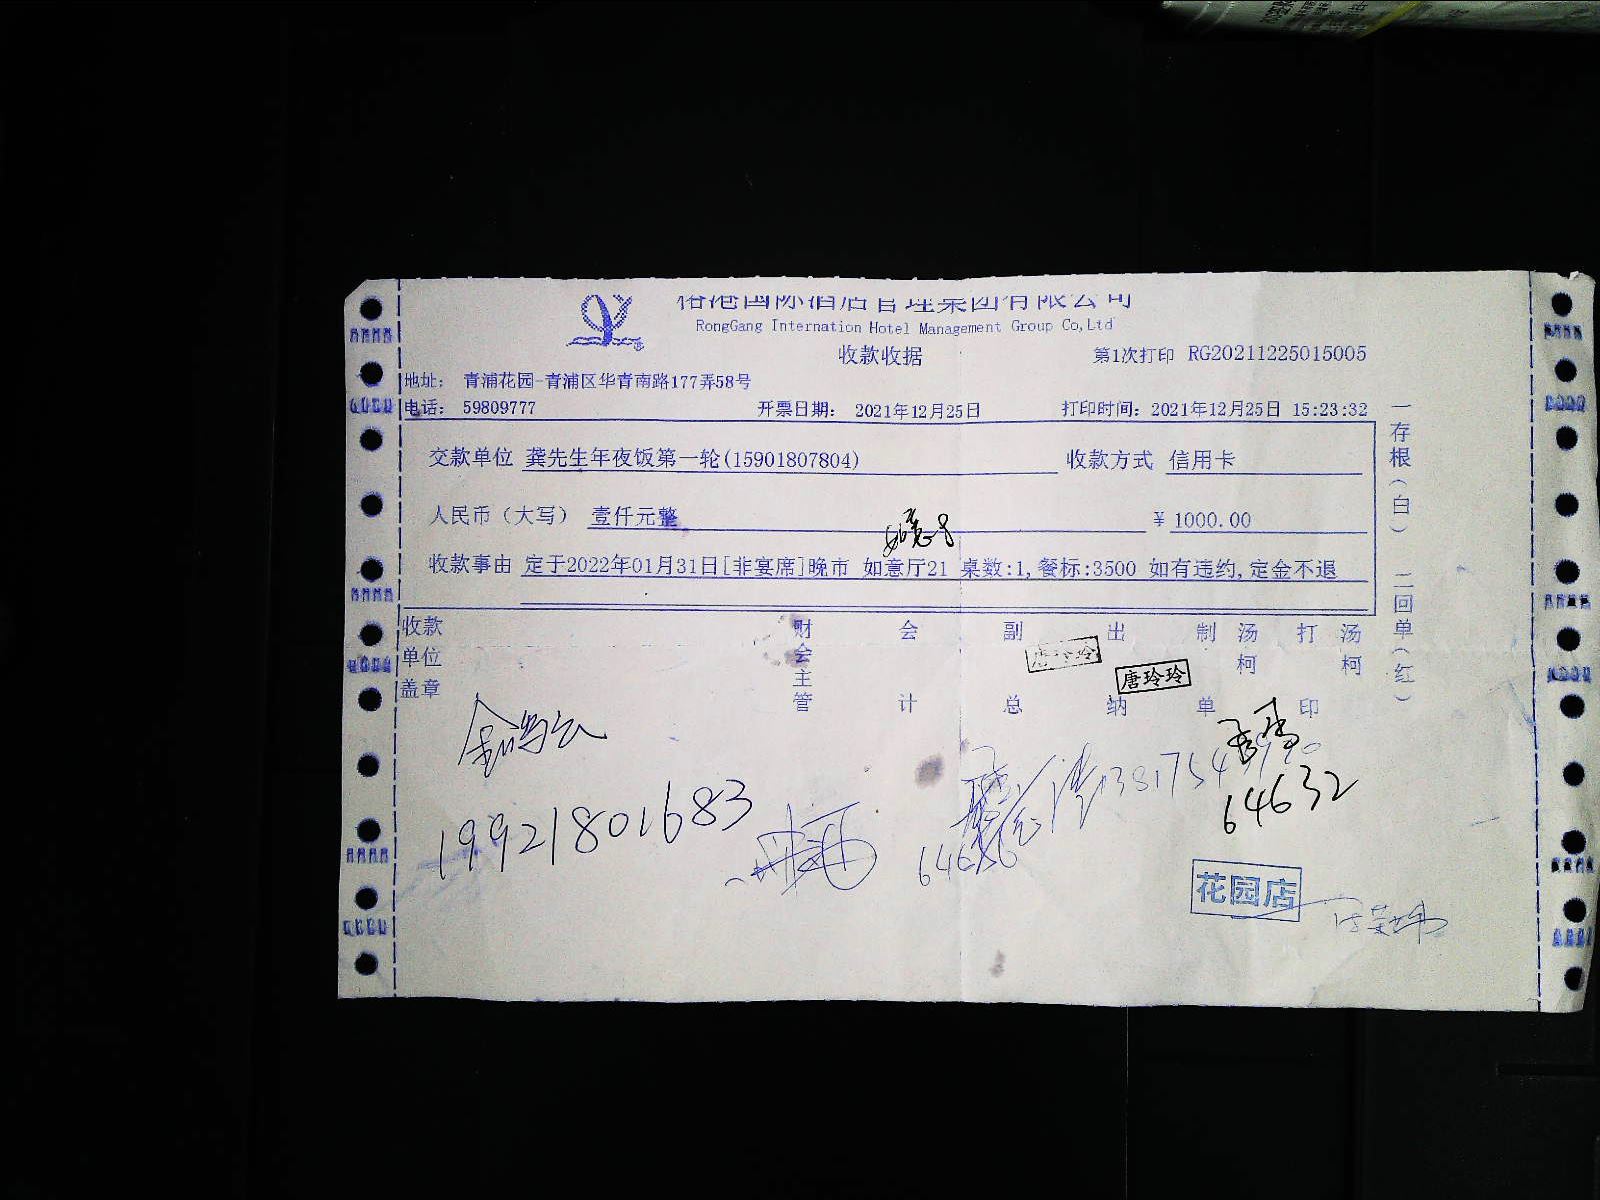 裕港国际酒店管理集团有限公司
RongGang Internation Hotel Management Group Co,Ltd
收款收据
第1次打印 RG20211225015005
地址: 青浦花园-青浦区华青南路177弄58号
电话: 59809777 开票日期: 2021年12月25日 打印时间: 2021年12月25日 15:23:32
交款单位 龚先生年夜饭第一轮(15901807804) 收款方式 信用卡
人民币（大写） 壹仟元整 ¥ 1000.00
如意8
收款事由 定于2022年01月31日[非宴席]晚市 如意厅21 桌数:1,餐标:3500 如有违约,定金不退
一存根(白) 二回单(红)
收款单位盖章 财会主管 会计 副总 出纳 制单 汤柯 打印 汤柯
唐玲玲
唐玲玲
19921801683
64632
花园店